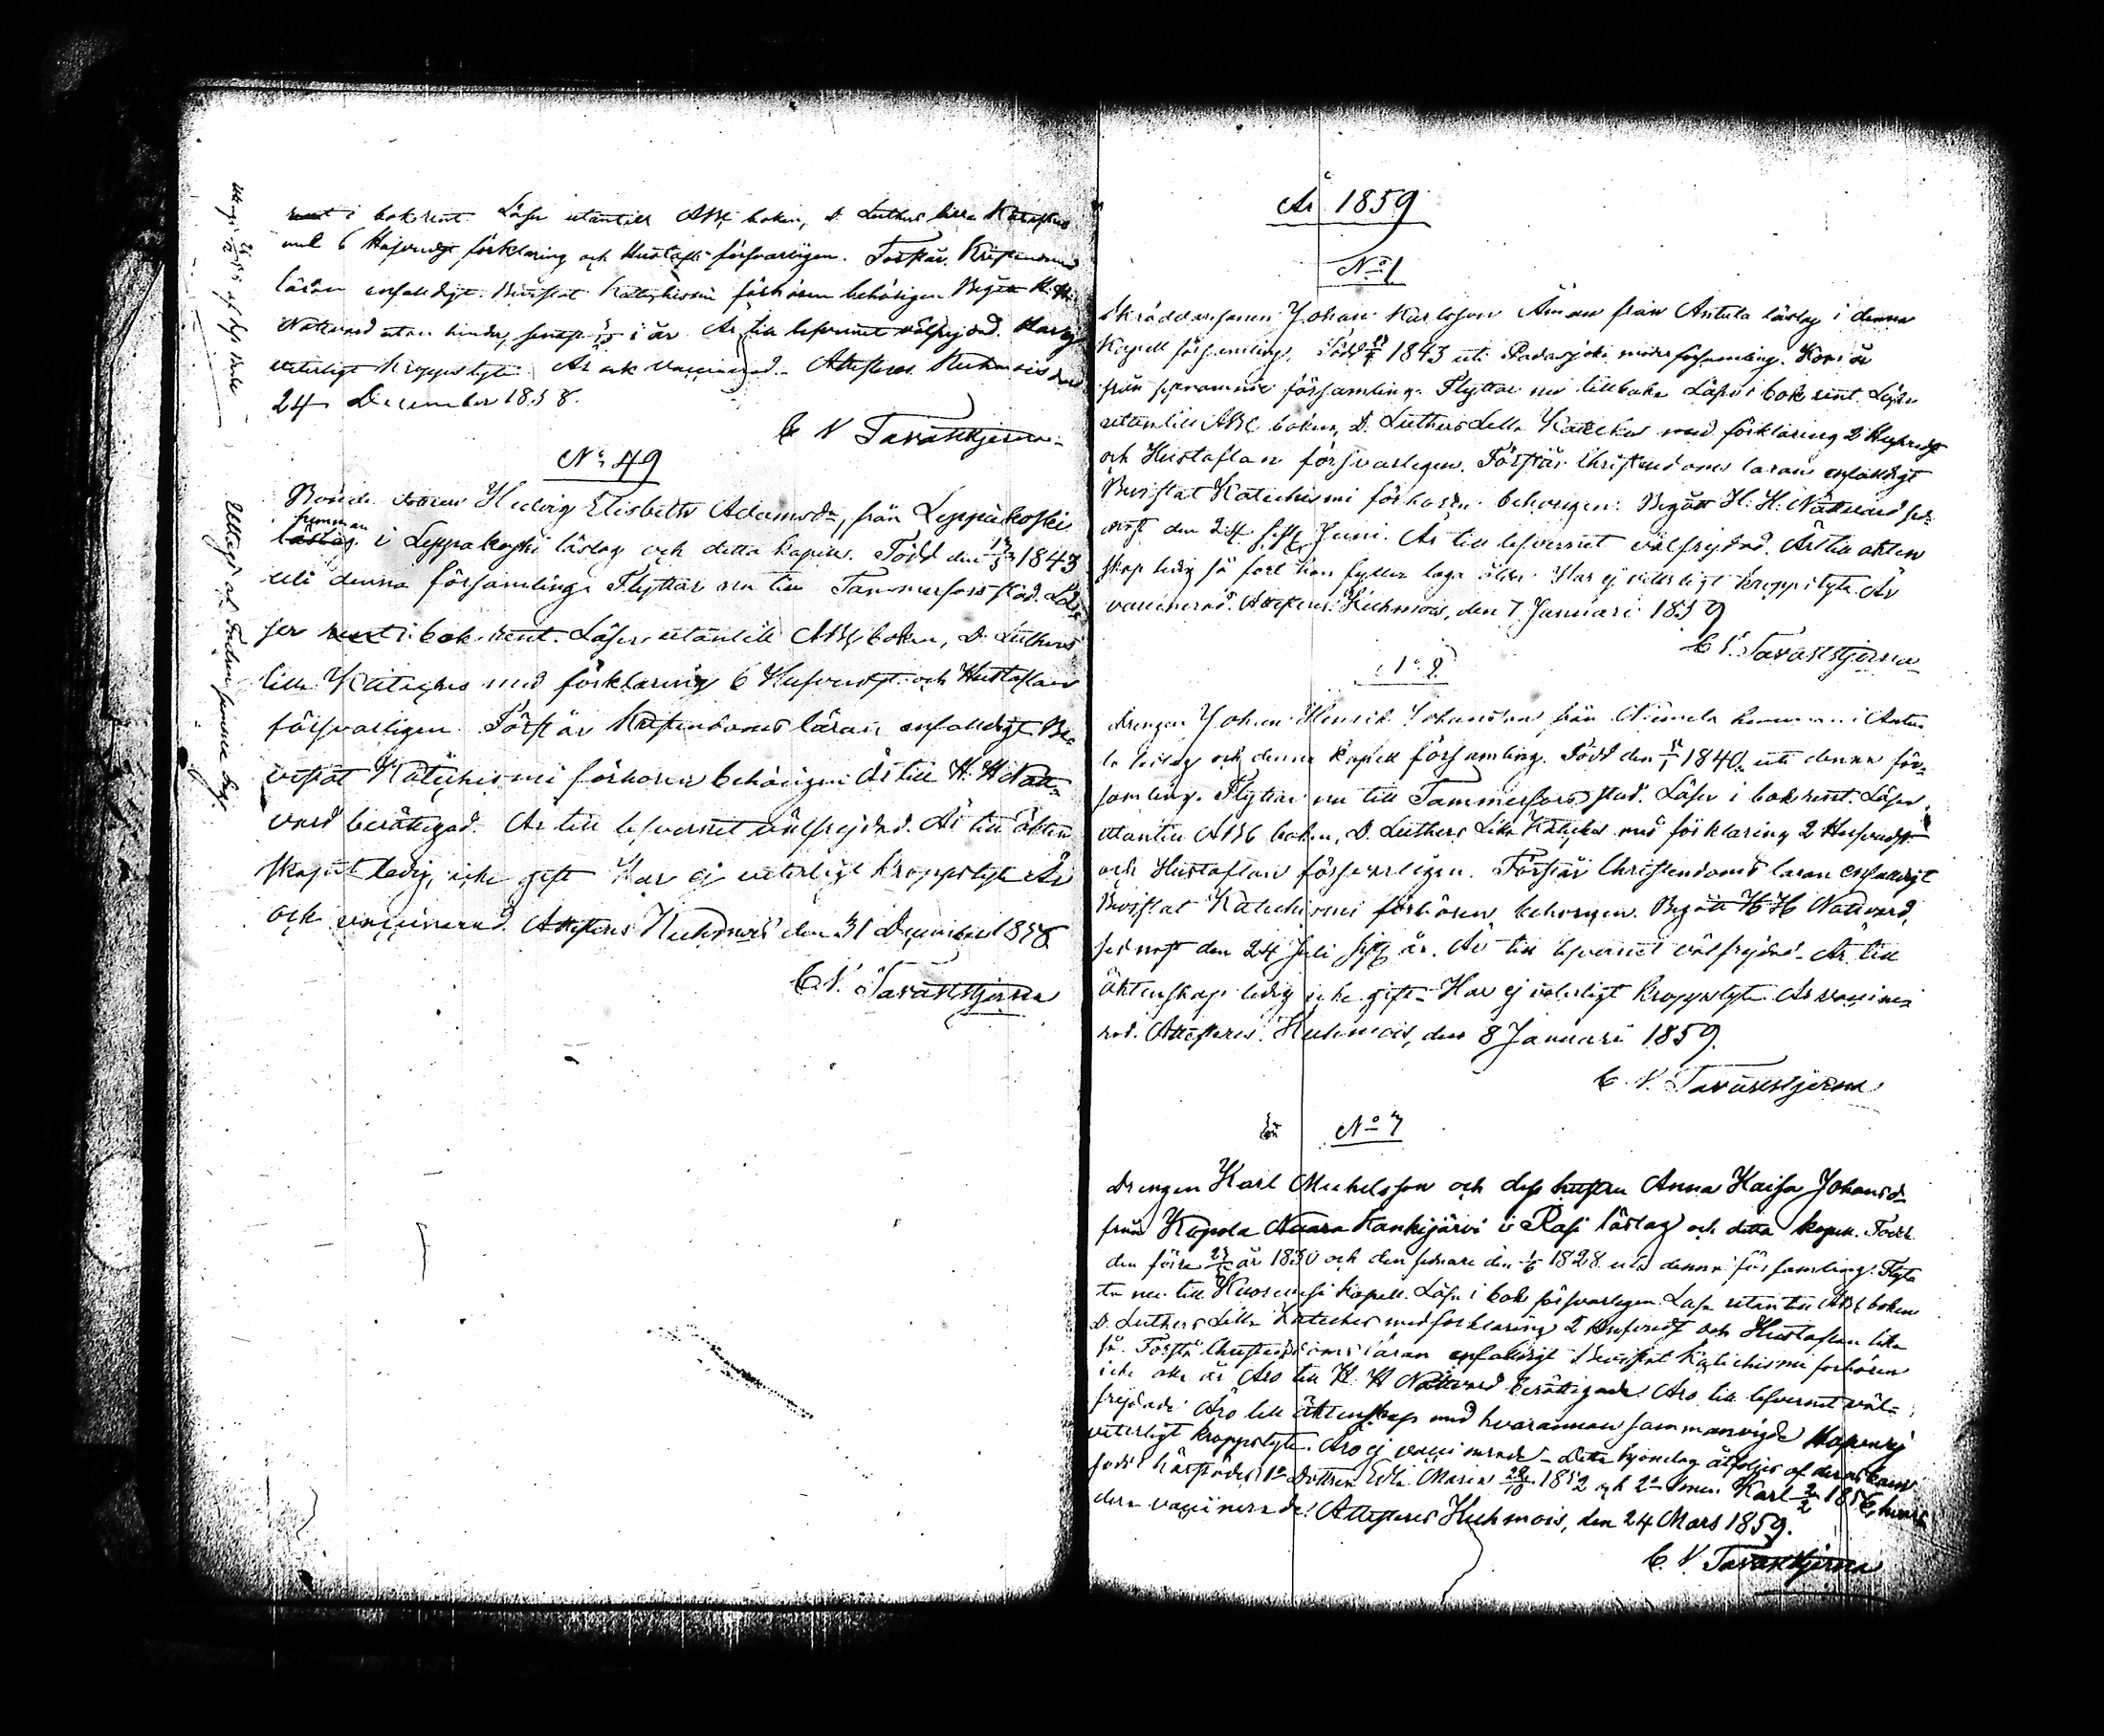 i bok rent. Läser utantill ABC boken, D. Luthers lilla Kateches
med 6 Hufvudst förklaring och Hustaflan försvarligen. Förstår Kristendoms
läran enfaldigt. Bevistat Katechismi förhören behörigen. Begått H. H.
Nattvard utan hinder, senast i år. Är till lefvernet välfrejdad. Har ej
veterligt kroppslyte. Är ock vaccinerad. Attesteras Kuhmois den
24 December 1858.
C V Tavaststjerna.
No 49
Bonde Hedvig Elisbeth Adamsdr, från Leppäkoski
hemman
i Leppäkoski låslag och detta kapell. Född den 1843
uti denna församling. Flyttar nu till Tammerfors stad. Lä-
ser i bok rent. Läser utantill ABC boken, D. Luthers
lilla Kateches med förklaring 6 Hufvudst. och Hustaflan
försvarligen. Förstår Kristendoms läran enfaldigt. Be-
vistat Katechismi förhören behörigen. Är till H. H. Natt-
vard berättigad. Är till lefvernet välfrejdad. Är till äkten
skap ledig, icke gift. Har ej veterligt kroppslyte. Är
ock vaccinerad. Attesteras Kuhmois den 31 December 1858.
C. V. Tavaststjerna
År 1859
No 1.
Johan Karlsson Åman från Antola låslag i denna
Kapell församling. Född 1843 uti Padasjoki moderförsamling. Kom
från församling. Flyttar nu tillbaka. Läser i bok rent. Läser
utantill ABC boken, D. Luthers Lilla Kateches med förklaring 2 Hufvudst
och Hustaflan försvarligen. Förstår Christendoms läran enfaldigt
Bevistat Katechismi förhören behörigen. Begått H. H. Nattvard sed-
nast den 24 Juni. Är till lefvernet välfrejdad. Är till äkten
skap ledig så fort han fyller laga ålder. Har ej veterligt kroppslyte. Är
vaccinerad. Attesteras Kuhmois, den 7 Januari 1859
C V. Tavaststjerna
No 2.
Drengen Johan Henrik Johansson från Niemelä hemman i Anto-
la låslag och denna kapell församling. Född den 1840 uti denna för-
samling. Flyttar nu till Tammerfors stad. Läser i bok rent. Läser
utantill ABC boken, D. Luthers Lilla Kateches med förklaring 2 Hufvudst.
och Hustaflan försvarligen. Förstår Christendoms läran enfaldigt
Bevistat Katechismi förhören behörigen. Begått H H Nattvard,
sednast den 24 Juli år. Är till lefvernet välfrejdad. Är till
äktenskap ledig icke gift. Har ej veterligt kroppslyte. Är vaccine-
rad. Attesteras. Kuhmois, den 8 Januari 1859.
C. V. Tavaststjerna
No 3
Drengen Karl Michelsson och dess hustru Anna Kaisa Johansdr
från Kankijärvi i Rasi låslag och detta kapell. Född
den förre år 1830 och den senare den 1828 uti denna församling. Flytta
nu till Kuorevesi Kapell. Läsa i bok försvarligen. Läsa utantill ABC boken
D. Luthers Lilla Kateches med förklaring 2 Hufvudst och Hustaflan lika
så. Förstå Christendoms läran enfaldigt. Bevistat Katechismi förhören
icke alla år. Äro till H. H Nattvard berättigade. Äro till lefvernet väl-
frejdade. Äro till äktenskap med hvarannan sammanvigde. Hafva ej
veterligt kroppslyte. Äro ej vaccinerade. Detta hjonelag åtföljes af deras barn
födde härstädes 1o Dottren Maria 1852 och 2o Sonen Karl 1856,
vaccinerade. Attesteras Kuhmois, den 24 Mars 1859.
C. V. Tavaststjerna